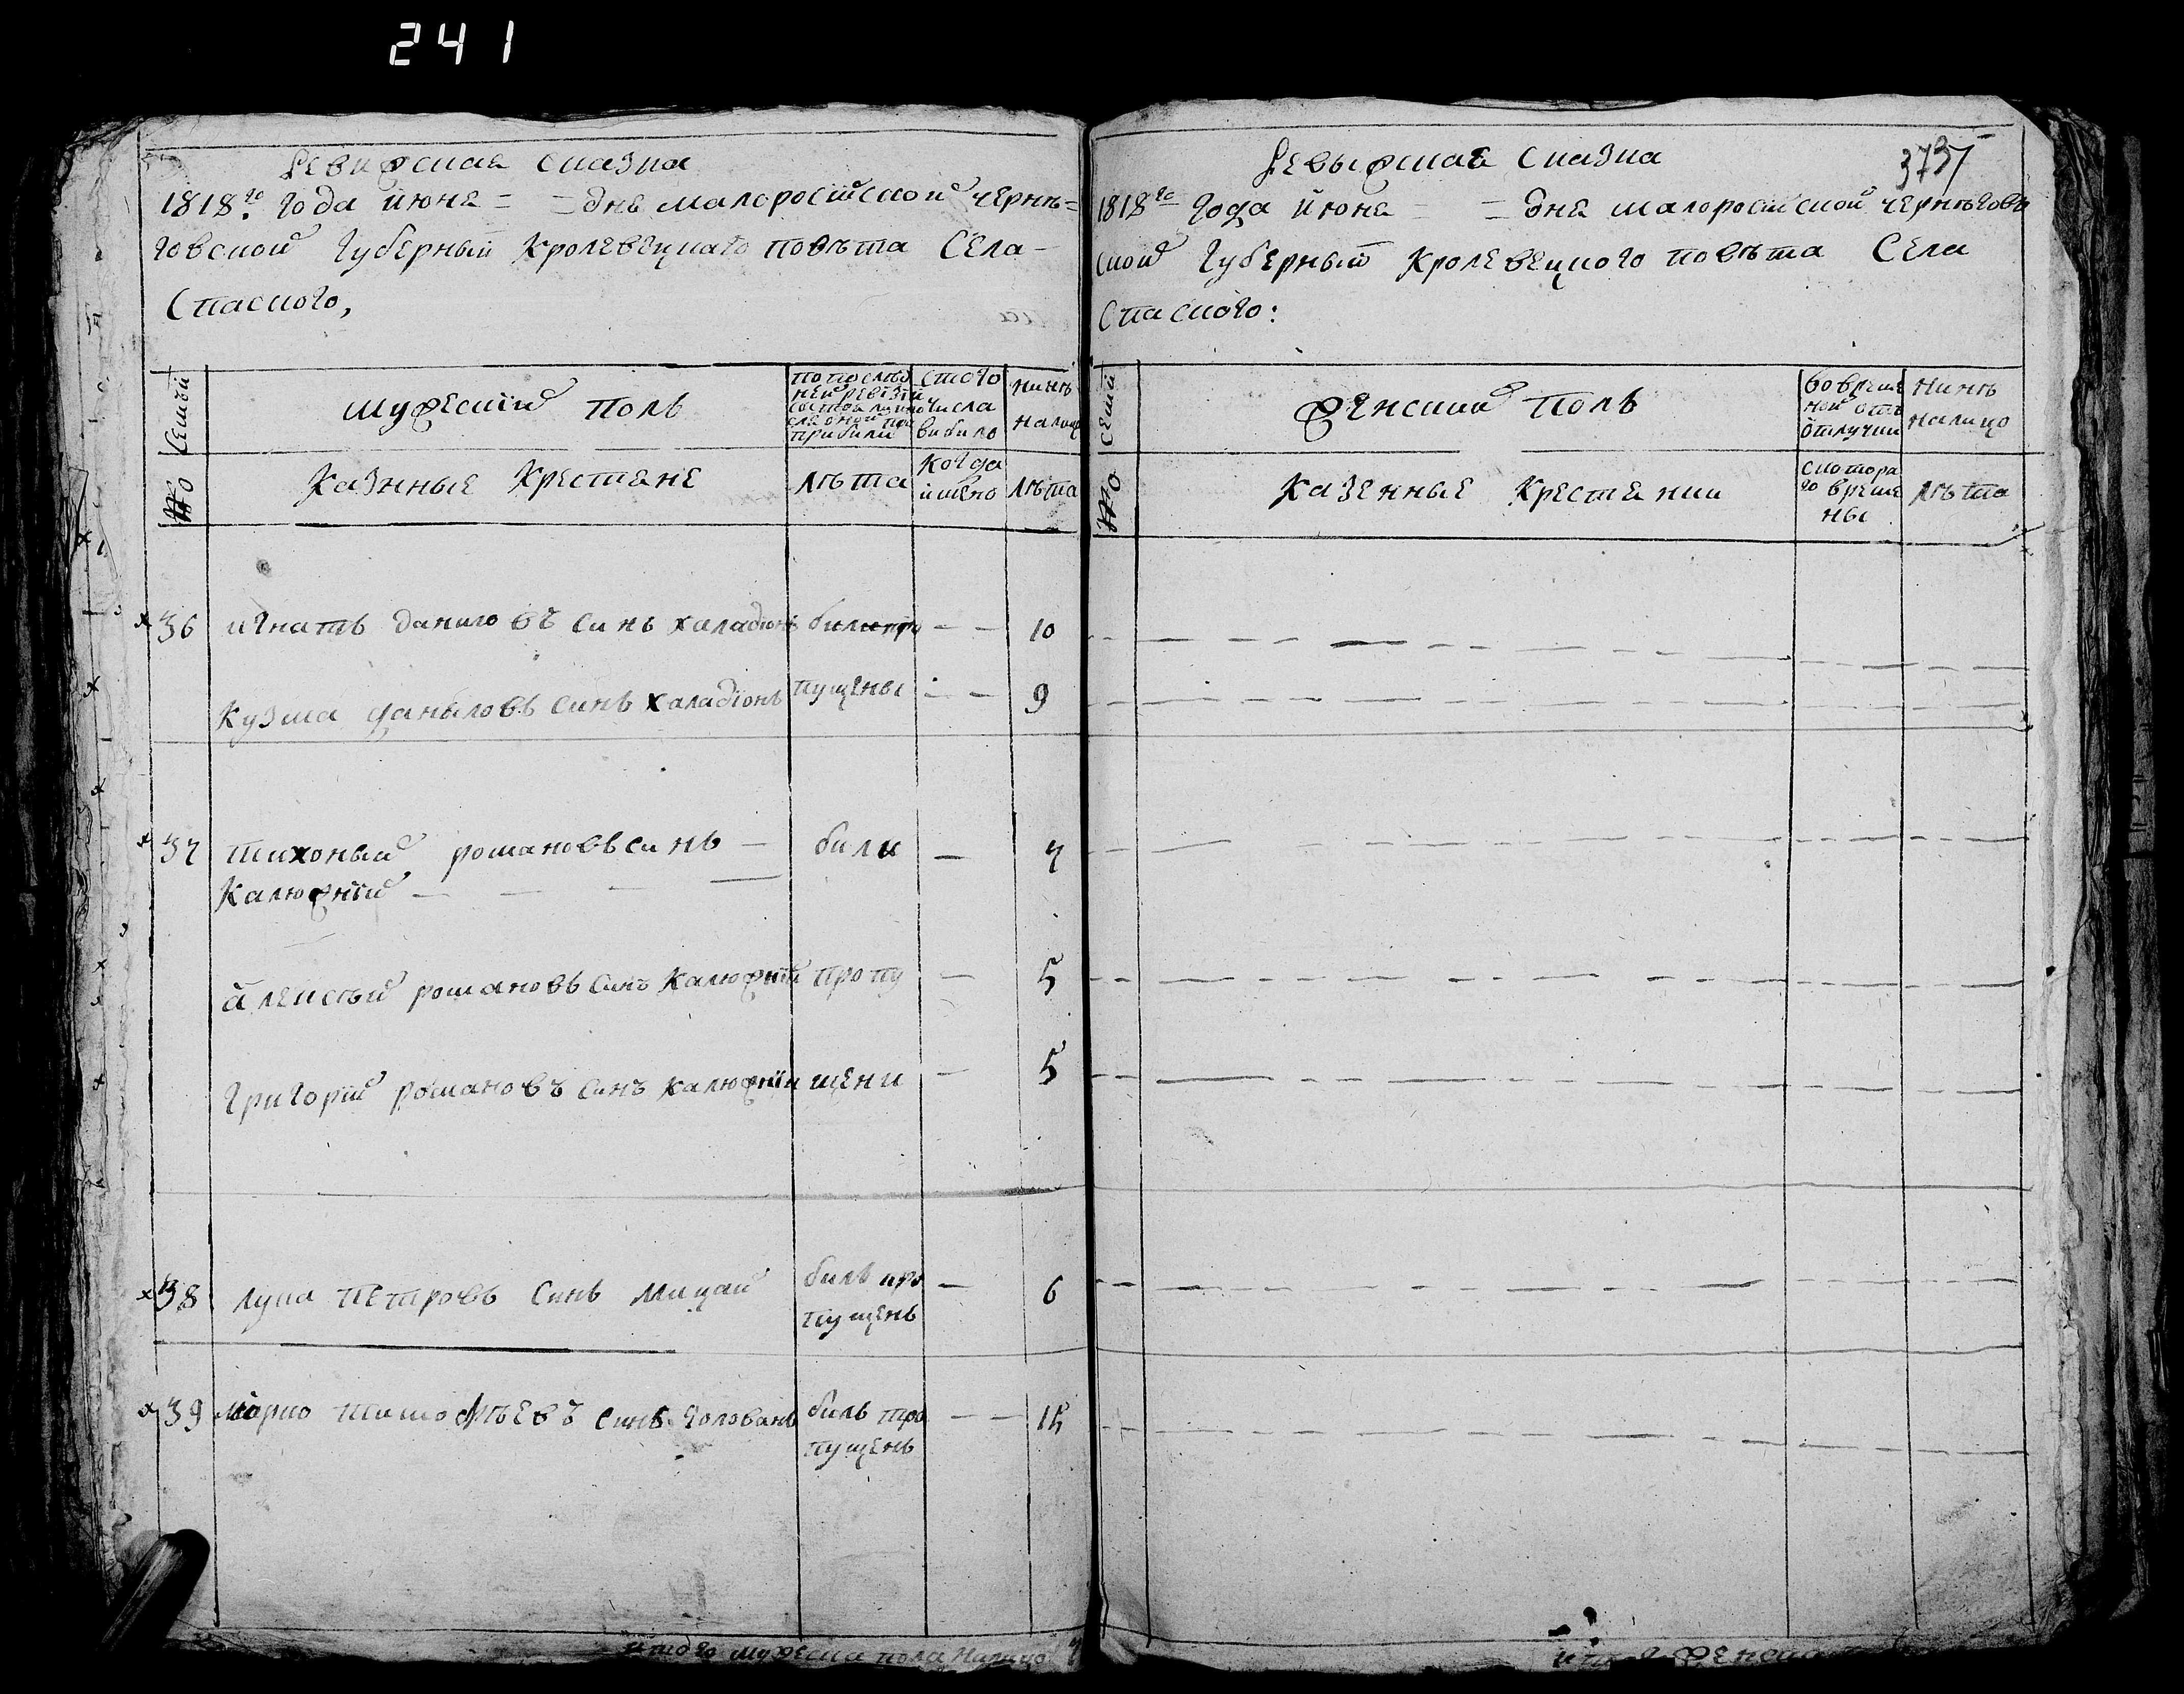 241
Ревизская сказка
1818го года июня = = дня малоросійской черне=
говской Губерный Кролевецкаго повѣта Села —
Спаского,
Семьй
№
мужескій полъ
по послед
ней ревізіи
состояло и по
сле оной при
прибили
с того
числа
вибило
нинѣ
налицо
Казнные Крестяне
Лѣта
Когда
имено
Лѣта
36 игнатъ даниловъ синъ халадіонъ били про — — 10
Кузма даныловъ синъ халадіонъ пущены — — 9
37 тихоный романовъ синъ — били — 7
Калюжній — — — —
алексѣй романовъ синъ Калюжній пропу — 5
григорій романовъ синъ калюжній щени — 5
38 лука петровъ синъ Мицай билъ про — 6
пущенъ
39 марко тимофѣевъ синъ головань билъ про — — 15
пущенъ
итого мужеска пола Налицо 7
Ревыжская сказка
373
1818го года июня — = дня малоросійской чернѣговъ
ской Губерный Кролевецкого повѣта Села
Спаского:
семьй
№
женскій полъ
во време
ной отъ
отлучки
нинѣ
налицо
Казенные Крестянки
с которо
го време
ны
лѣта